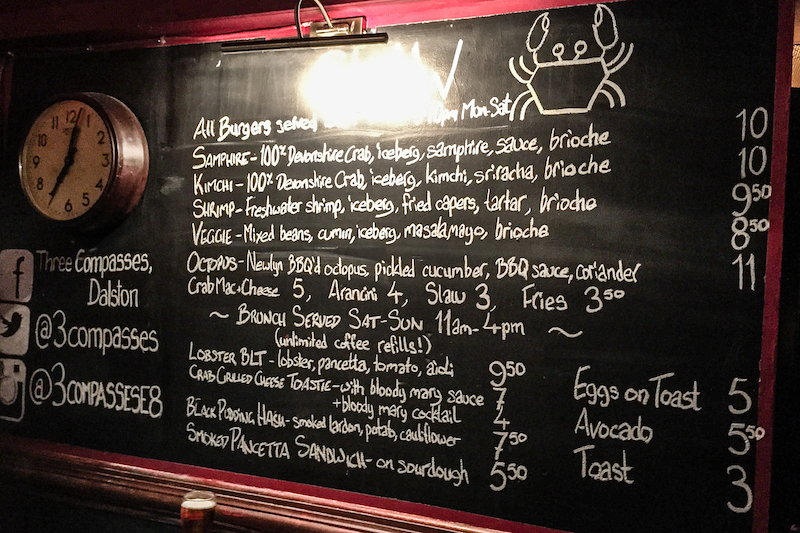 All Burgers served pm Mon-Sat
SAMPHIRE - 100% Devonshire Crab, iceberg, samphire, sauce, brioche 10
KIMCHI - 100% Devonshire Crab, iceberg, kimchi, sriracha, brioche 10
SHRIMP - Freshwater shrimp, iceberg, fried capers, tartar, brioche 950
VEGGIE - Mixed beans, cumin, iceberg, masala mayo, brioche 850
OCTOPUS - Newlyn BBQ'd octopus, pickled cucumber, BBQ sauce, coriander 11
Crab Mac + Cheese 5, Arancini 4, Slaw 3, Fries 350
~ BRUNCH SERVED SAT-SUN 11am-4pm ~
(unlimited coffee refills!)
LOBSTER BLT - lobster, pancetta, tomato, aioli 950
CRAB GRILLED CHEESE TOASTIE - with bloody mary sauce 7
+ bloody mary cocktail 4
BLACK PUDDING HASH - smoked lardon, potato, cauliflower 750
SMOKED PANCETTA SANDWICH - on sourdough 550
Eggs on Toast 5
Avocado 550
Toast 3
12
1
2
3
4
5
6
7
8
9
10
11
f Three Compasses,
Dalston
@3compasses
@3COMPASSESE8